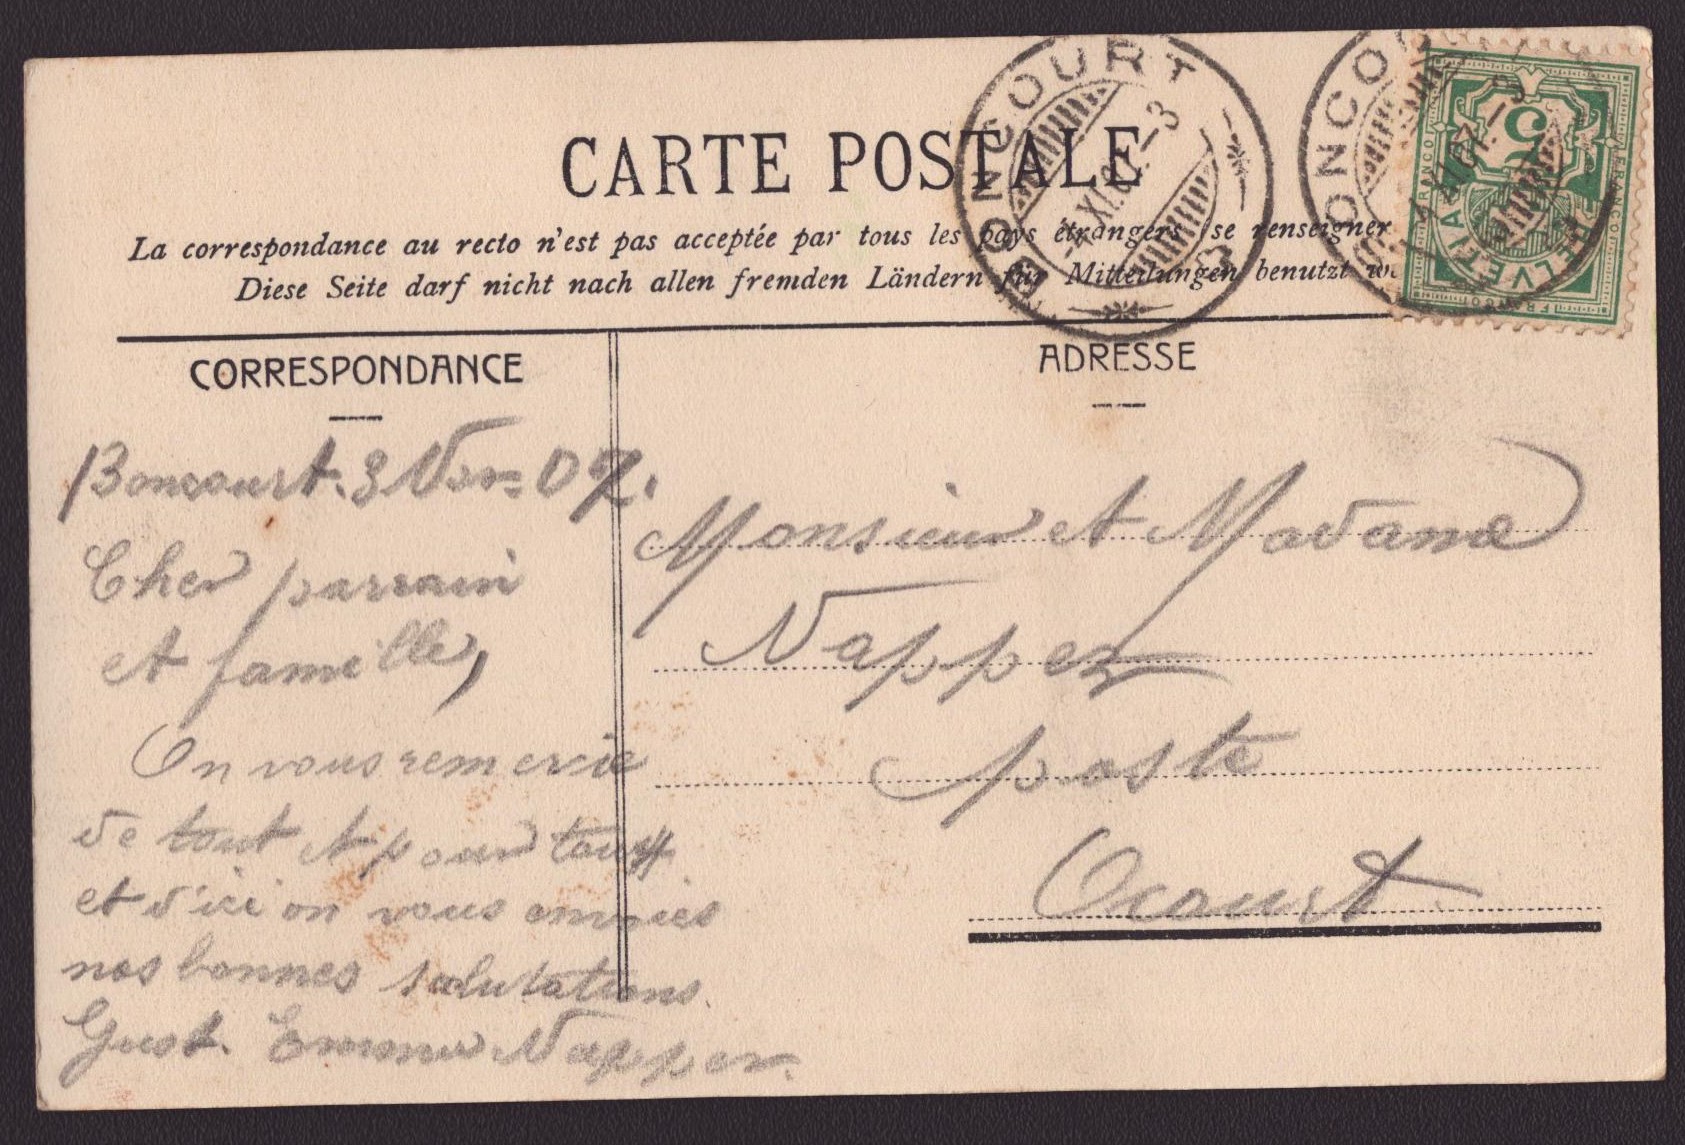 CARTE POSTALE
La correspondance au recto n'est pas acceptée par tous les pays étrangers se renseigner
Diese Seite darf nicht nach allen fremden Ländern für Mitteilungen benutzt
BONCOURT
XI.07.-3
BONCO
XI.07.-3
5
FRANCO
HELVETIA
CORRESPONDANCE
ADRESSE
Boncourt. 3 Nov. 07.
Cher parrain
et famille,
On vous remercie
de tout et pour tous
et d'ici on vous envoies
nos bonnes salutations.
Gust. Napper.
Monsieur et Madame
Napper
poste
Ocourt.